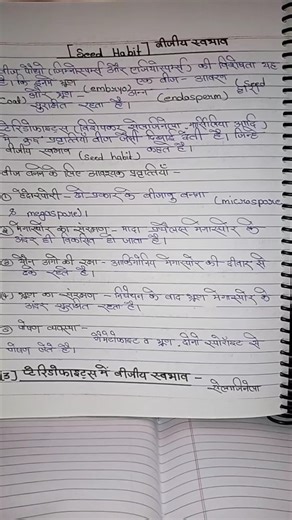 [Seed Habit] बीजीय स्वभाव
बीज पौधों (जिम्नोस्पर्म्स और एंजियोस्पर्म्स) की विशेषता यह
है। कि इनमें भ्रूण (embryo) एक बीज - आवरण (seed
coat) और भ्रूण अन्न (endosperm) द्वारा
सुरक्षित रहता है।
टेरिडोफाइट्स (विशेषकर सेलाजिनेला, मार्सिलिया आदि)
में कुछ प्रवृत्तियाँ बीज जैसी दिखाई देती है। जिन्हें
बीजीय स्वभाव (seed habit) कहते है।
बीज बनने के लिए आवश्यक प्रवृत्तियाँ -
① हेटेरोस्पोरी - दो प्रकार के बीजाणु बनना (microspore
& megaspore)।
② मेगास्पोर का संरक्षण - मादा मेगास्पोर के
अंदर ही विकसित हो जाता है।
③ यौन अंगो की रक्षा - आर्किगोनिया मेगास्पोर की दीवार से
ढके रहते है।
(4) भ्रूण का संरक्षण - निषेचन के बाद भ्रूण मेगास्पोर के
अंदर सुरक्षित रहता है।
⑤ पोषण व्यवस्था - गैमेटोफाइट व भ्रूण, दोनो स्पोरोफाइट से
पोषण लेते है।
[3] टेरिडोफाइट्स में बीजीय स्वभाव -
सेलाजिनेला